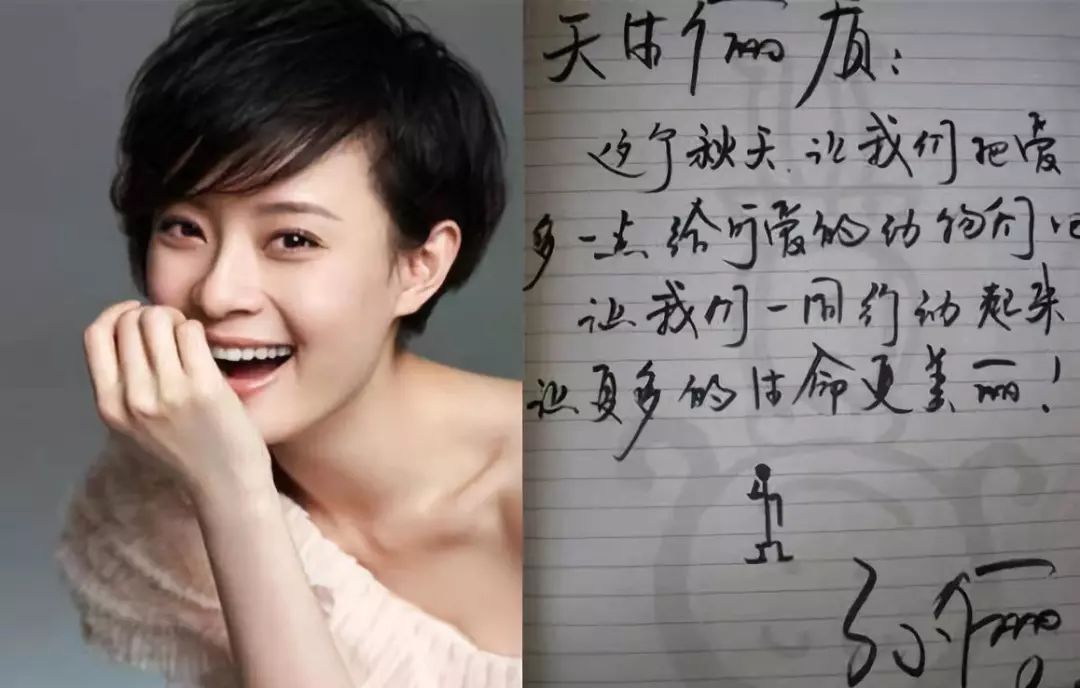 天生俪质：
这个秋天让我们把爱
多一点给可爱的动物们吧
让我们一同行动起来
让更多的生命更美丽！
孙俪